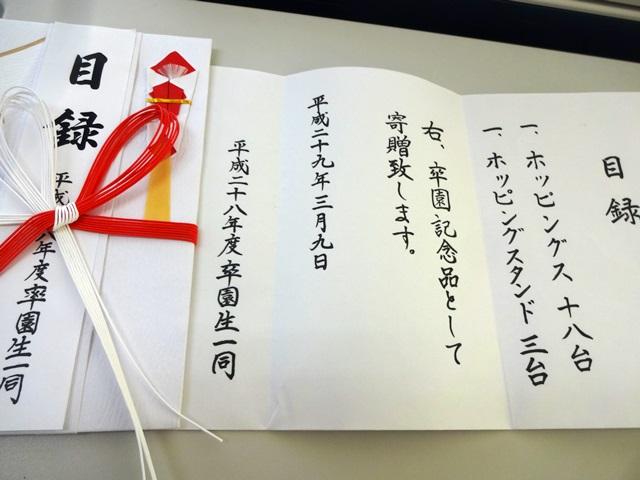 目録
一、ホッピングス 十八台
一、ホッピングスタンド 三台
右、卒園記念品として
寄贈致します。
平成二十九年三月九日
平成二十八年度 卒園生一同
目録
平成
八年度 卒園生一同